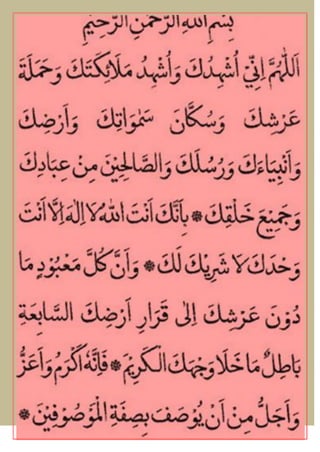 بِسْمِ اللهِ الرَّحْمٰنِ الرَّحِيْمِ
اَللّٰهُمَّ اِنِّيْ اُشْهِدُكَ وَاُشْهِدُ مَلَائِكَتَكَ وَحَمَلَةَ
عَرْشِكَ وَسُكَّانَ سَمٰوَاتِكَ وَاَرْضِكَ
وَاَنْبِيَاءَكَ وَرُسُلَكَ وَالصَّالِحِيْنَ مِنْ عِبَادِكَ
وَجَمِيْعَ خَلْقِكَ * بِاَنَّكَ اَنْتَ اللهُ لَا اِلٰهَ اِلَّا اَنْتَ
وَحْدَكَ لَا شَرِيْكَ لَكَ * وَاَنَّ كُلَّ مَعْبُوْدٍ مَا
دُوْنَ عَرْشِكَ اِلٰى قَرَارِ اَرْضِكَ السَّابِعَةِ
بَاطِلٌ مَا خَلَا وَجْهَكَ الْكَرِيْمَ * فَاِنَّهُ اَكْرَمُ وَاَعَزُّ
وَاَجَلُّ مِنْ اَنْ يُوْصَفَ بِصِفَةِ الْمَوْصُوْفِيْنَ *